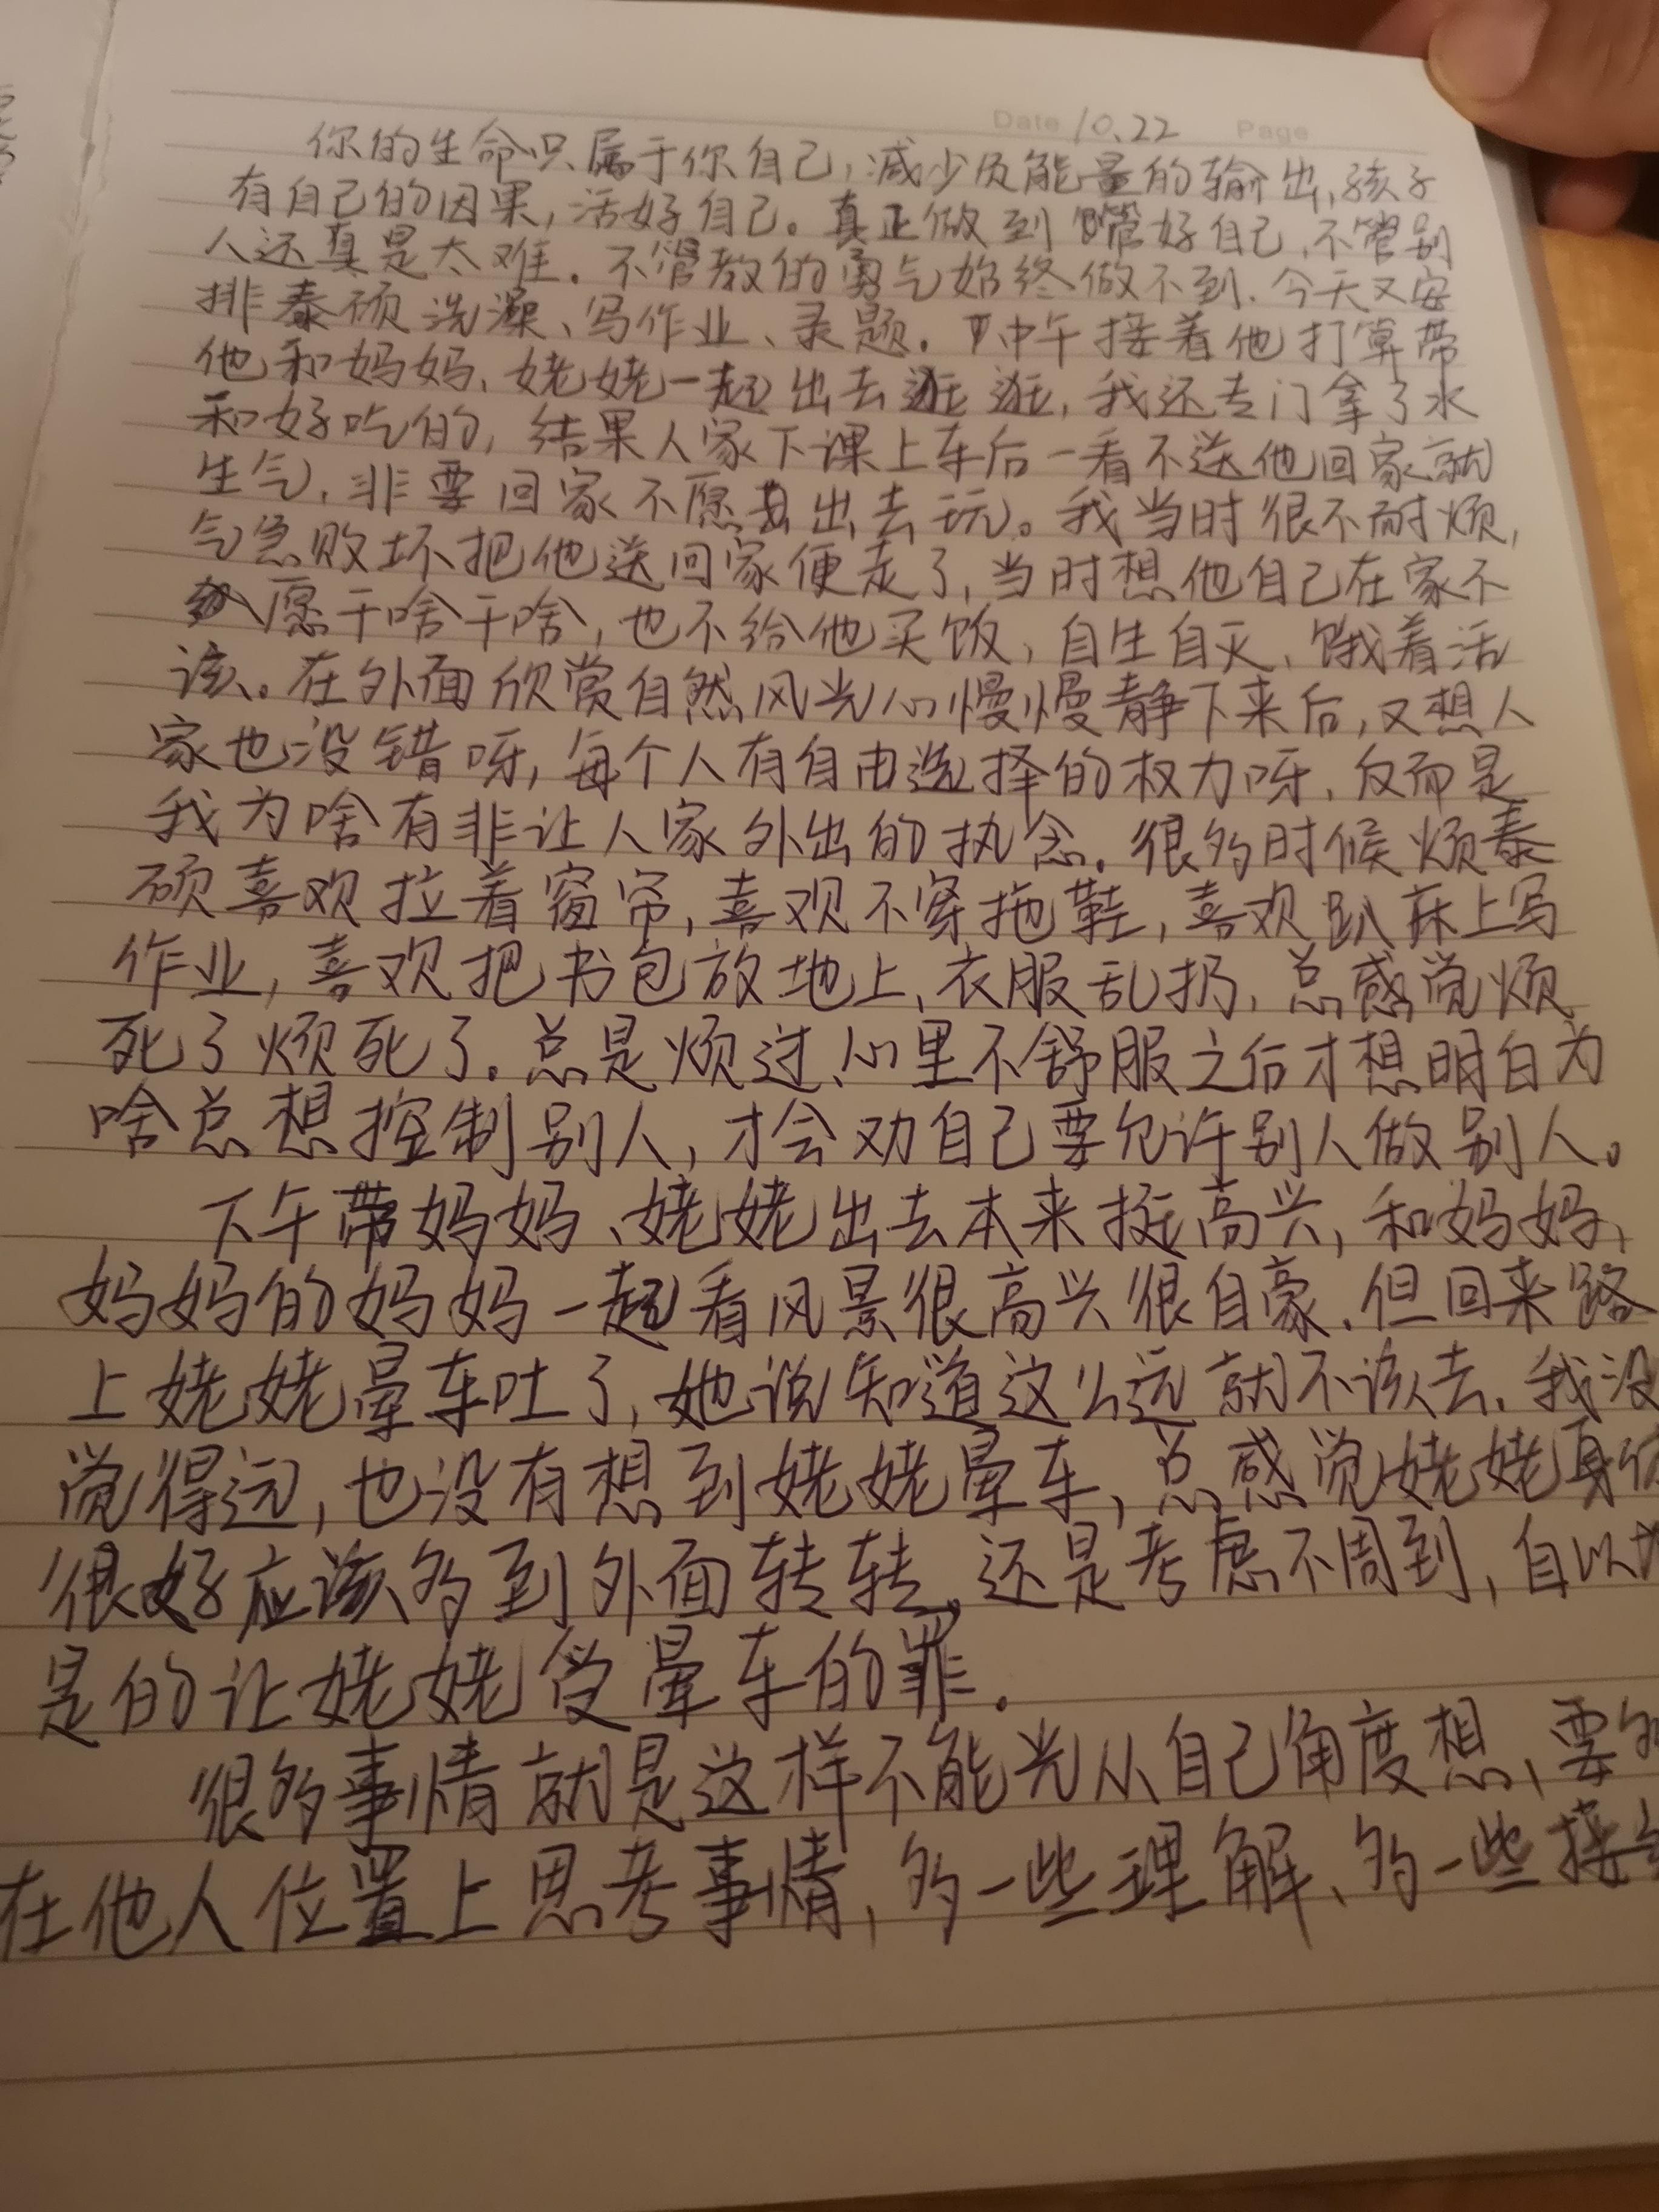 Date 10.22 Page
你的生命只属于你自己,减少负能量的输出,孩子
有自己的因果,活好自己。真正做到管好自己、不管别
人还真是太难。不管教的勇气始终做不到.今天又安
排泰硕洗澡、写作业、录题。中午接着他打算带
他和妈妈、姥姥一起出去逛逛,我还专门拿了水
和好吃的,结果人家下课上车后一看不送他回家就
生气,非要回家不愿出去玩。我当时很不耐烦,
气急败坏把他送回家便走了,当时想他自己在家不
愿干啥干啥,也不给他买饭,自生自灭、饿着活
该。在外面欣赏自然风光心慢慢静下来后,又想人
家也没错呀,每个人有自由选择的权力呀、反而是
我为啥有非让人家外出的执念。很多时候烦泰
硕喜欢拉着窗帘,喜欢不穿拖鞋,喜欢趴床上写
作业,喜欢把书包放地上、衣服乱扔,总感觉烦
死了烦死了。总是烦过、心里不舒服之后才想明白为
啥总想控制别人,才会劝自己要允许别人做别人。
下午带妈妈、姥姥出去本来挺高兴,和妈妈、
妈妈的妈妈一起看风景很高兴很自豪.但回来路
上姥姥晕车吐了,她说知道这么远就不该去.我没
觉得远,也没有想到姥姥晕车,总感觉姥姥身体
很好应该多到外面转转。还是考虑不周到,自以为
是的让姥姥受晕车的罪.
很多事情就是这样不能光从自己角度想、要多
在他人位置上思考事情,多一些理解、多一些接